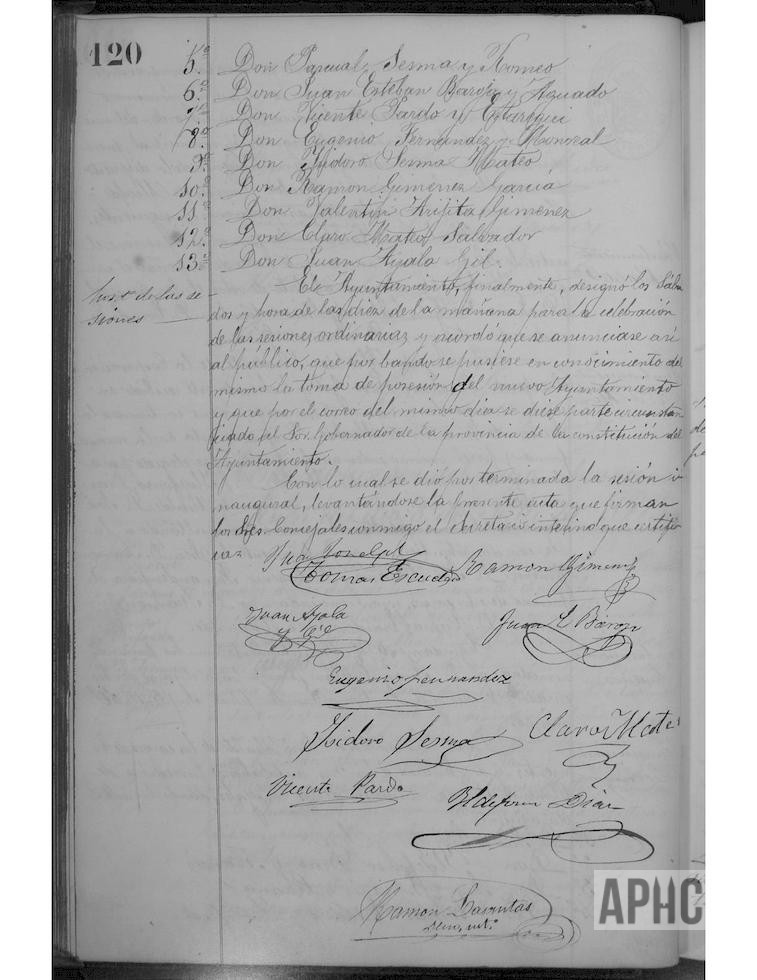 120
5.º Don Pascual Sesma y Romeo
6.º Don Juan Esteban Baroja y Aguado
7.º Don Vicente Pardo y
8.º Don Eugenio Fernandez y Monreal
9.º Don Isidoro Sesma Mateo
10.º Don Ramon Gimenez Garcia
11.º Don Valentin Arpita Gimenez
12.º Don Claro Mateo Salvador
13.º Don Juan Ayala Gil.
de las se-
siones
El Ayuntamiento, finalmente, designó los Sába-
dos y hora de las diez de la mañana para la celebración
de las sesiones ordinarias y acordó que se anunciase así
al público, que por bando se pusiese en conocimiento del
mismo la toma de posesión del nuevo Ayuntamiento
y que por el correo del mismo dia se diese parte circunstan-
ciado al Sor. Gobernador de la provincia de la constitución del
Ayuntamiento.
Con lo cual se dió por terminada la sesión i-
naugural, levantándose la presente acta que firman
los Sres. Concejales conmigo el Secretario interino que certifi-
caz
Tomas Escudero
Ramon Gimenez
Juan Ayala
y Gil
Juan E Baroja
Eugenio Fernandez
Isidoro Sesma
Claro Mateo
Vicente Pardo
Yldefonso Diaz
Ramon
APHC